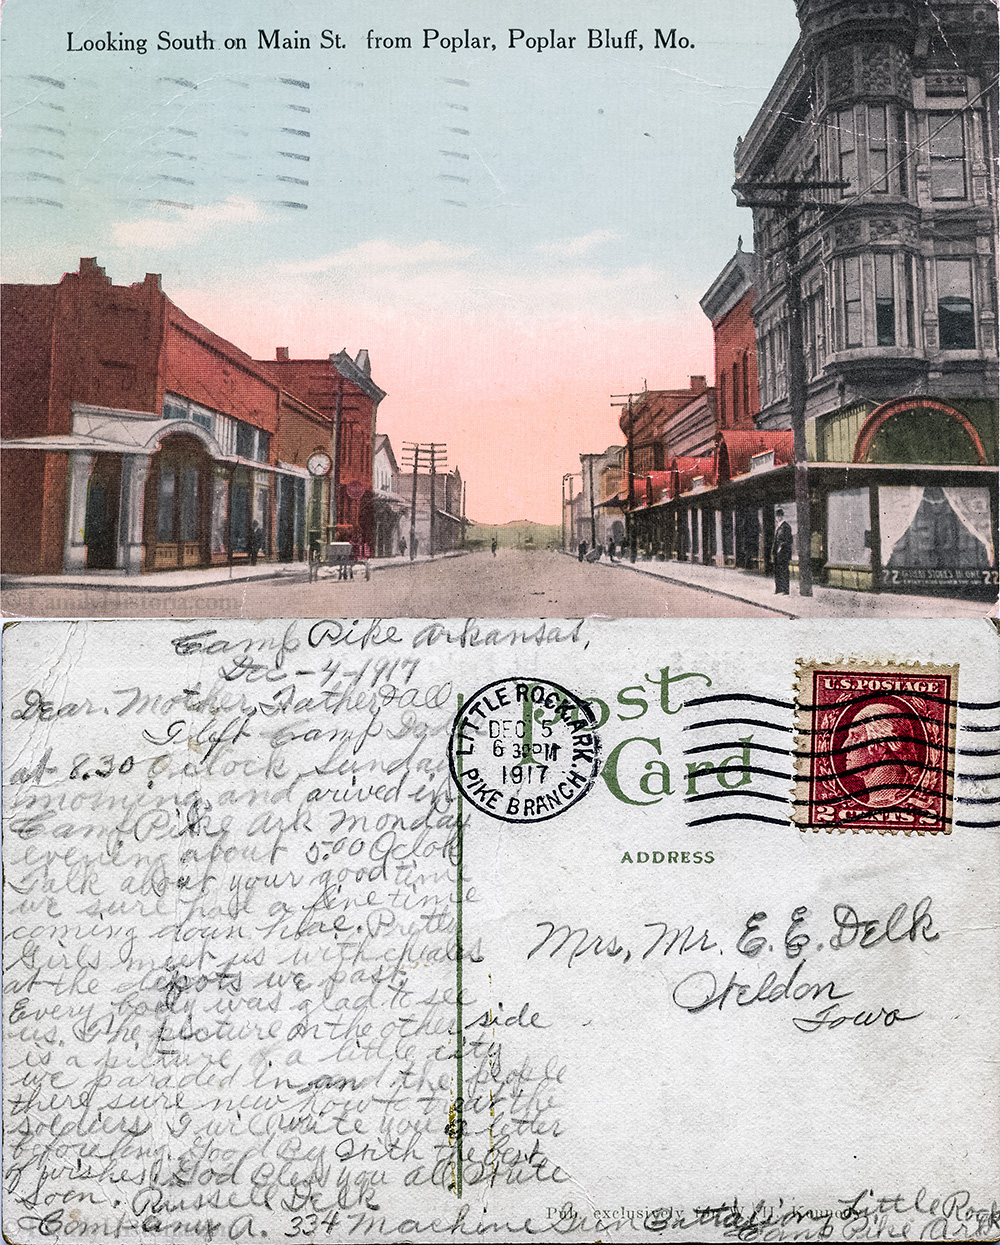 Looking South on Main St. from Poplar, Poplar Bluff, Mo.
77 STORES IN ONE 22
©FamilyHistoria.com
Camp Pike Arkansas,
Dec - 4 - 1917
Dear. Mother, Father & all
I left Camp Dodge
at 8.30 Oclock Sunday
morning and arived in
Camp Pike Ark Monday
evening about 5:00 Oclok
Talk about your good time
we sure had a fine time
coming down hear. Pretty
Girls meet us with
at the depots we past.
Every body was glad to see
us. The picture on the other side
is a picture of a little city
we paraded in and the people
there sure new how to treat the
soldiers I will write you a letter
before long. Good By With the best
of wishes. God Bless you all Write
soon. Russell Delk
Company A. 334 Machine Gun Battalion, Little Rock
Camp Pike Ark
Post
Card
LITTLE ROCK, ARK.
DEC 5
6 30 PM
1917
PIKE BRANCH
U.S. POSTAGE
2 CENTS 2
ADDRESS
Mrs, Mr. E. E. Delk
Weldon
Iowa
Pub. exclusively for W. H. Kennedy